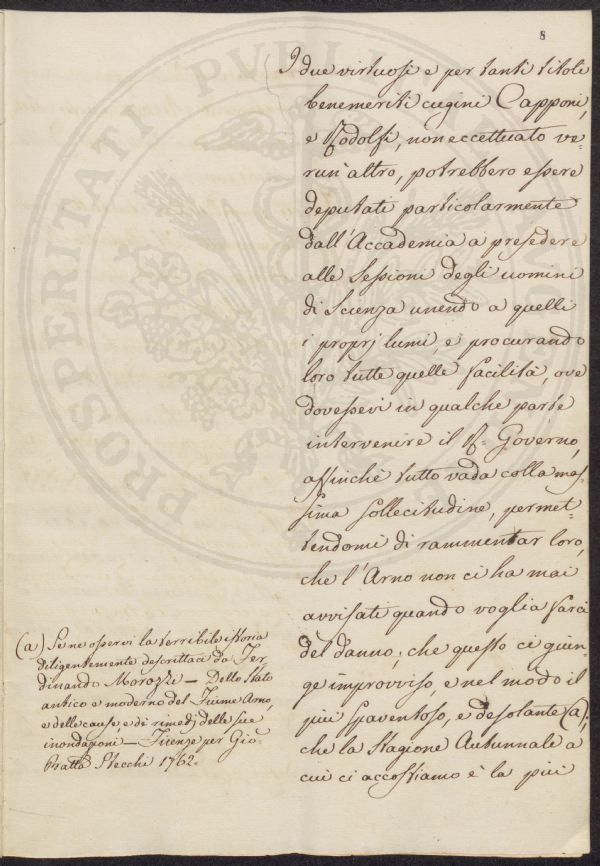 8
I due virtuosi e per tanti titoli
benemeriti cugini Capponi,
e Rodolfi, non eccettuato ve-
run' altro, potrebbero essere
deputati particolarmente
dall'Accademia a presedere
alle Sessioni degli uomini
di Scienza unendo a quelli
i proprj lumi, e procurando
loro tutte quelle facilità, ove
dovessevi in qualche parte
intervenire il R. Governo,
affinchè tutto vada colla mas-
sima sollecitudine, permet-
tendomi di rammentar loro,
che l'Arno non ci ha mai
avvisati quando voglia farci
del danno; che questo ci giun-
ge improvviso, e nel modo il
più spaventoso, e desolante (a);
che la Stagione Autunnale a
cui ci accostiamo è la più
(a) Se ne osservi la terribile istoria
diligentemente descritta da Fer-
dinando Morozzi — Dello Stato
antico e moderno del Fiume Arno,
e delle cause, e di rimedj delle sue
inondazioni — Firenze per Gio.
Batta Stecchi 1762.
PROSPERITATI PVBLICAE